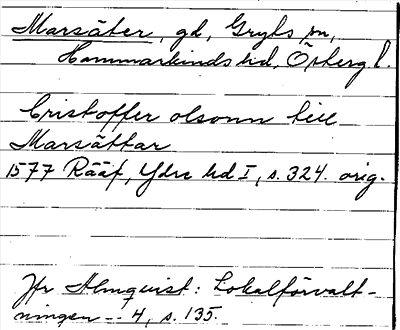 Marsäter, gd, Gryts sn,
Hammarkinds hd, Österg. l.
Cristoffer olsonn till
Marsättar
1577 Rääf, Ydre hd I, s. 324. orig.
Jfr Almquist: Lokalförvalt-
ningen -- 4, s. 135.